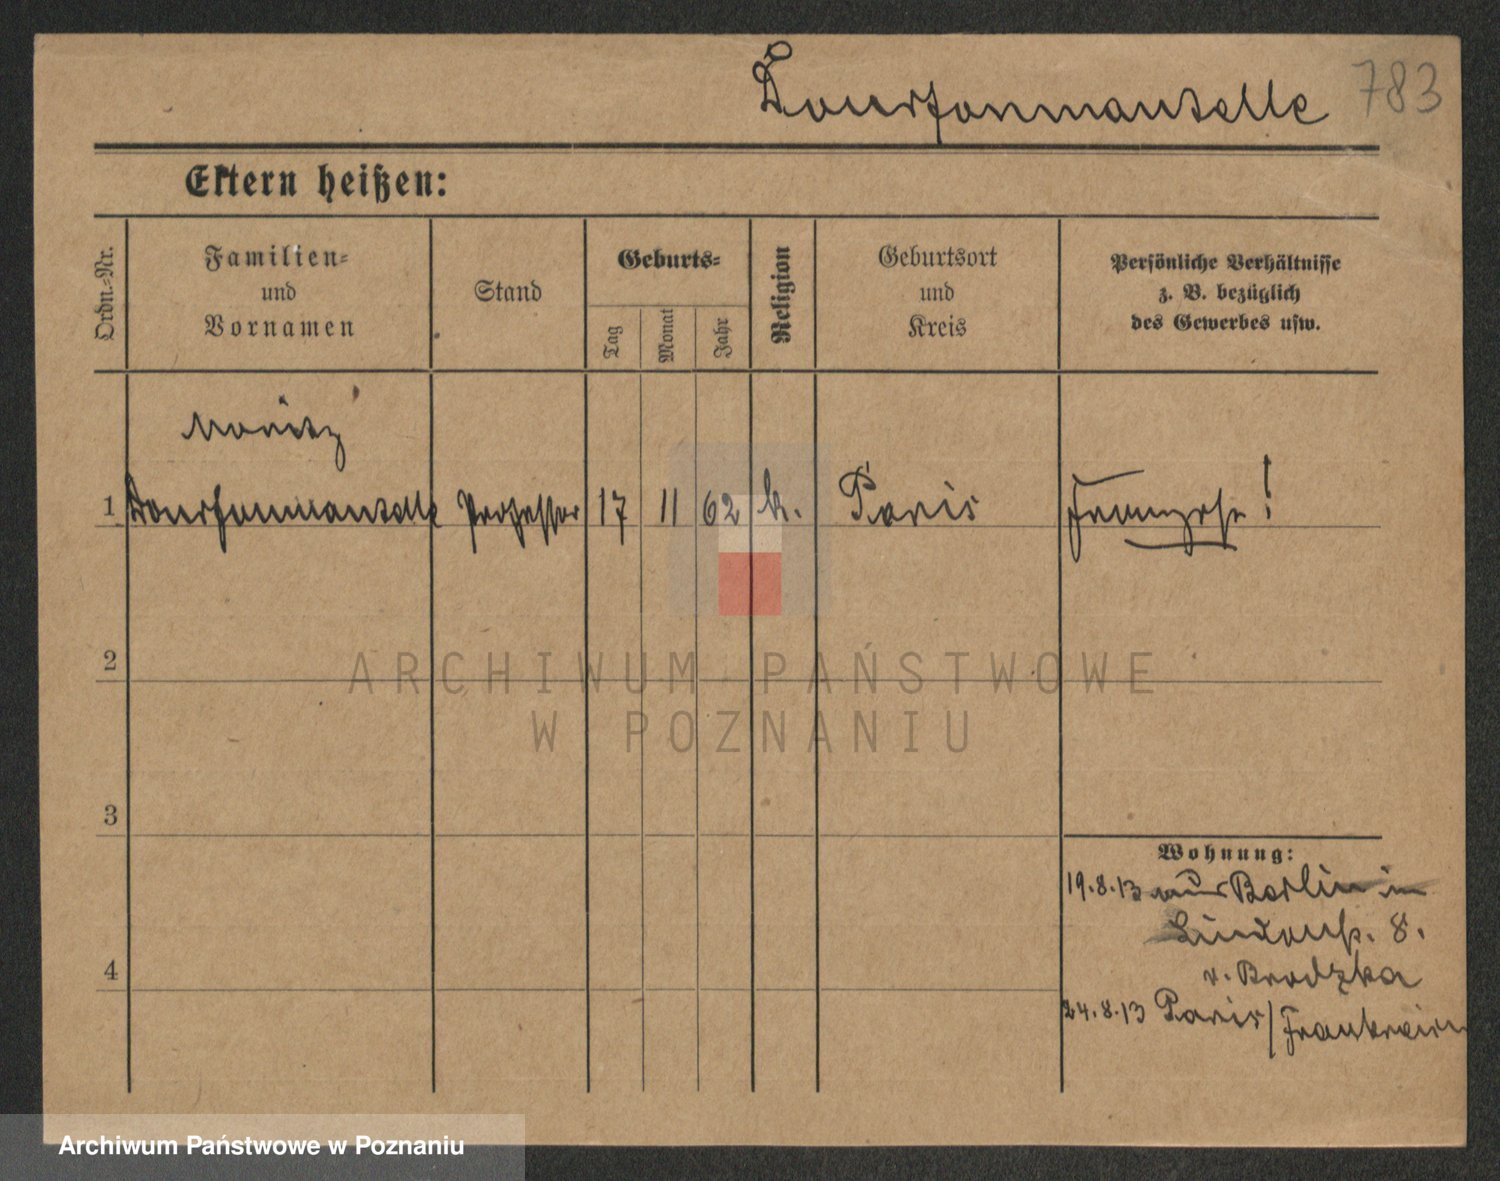 783
Eltern heißen:
Ordn.-Nr.
Familien-
und
Vornamen
Stand
Geburts-
Tag
Monat
Jahr
Religion
Geburtsort
und
Kreis
Persönliche Verhältnisse
z. B. bezüglich
des Gewerbes usw.
Moritz
1 Professor 17 11 62 k. Paris Franzose!
2
3
4
Wohnung:
19.8.13 aus Berlin in
Lindenstr. 8.
v. Brodzka
24.8.13 Paris/Frankreich
ARCHIWUM PAŃSTWOWE
W POZNANIU
Archiwum Państwowe w Poznaniu